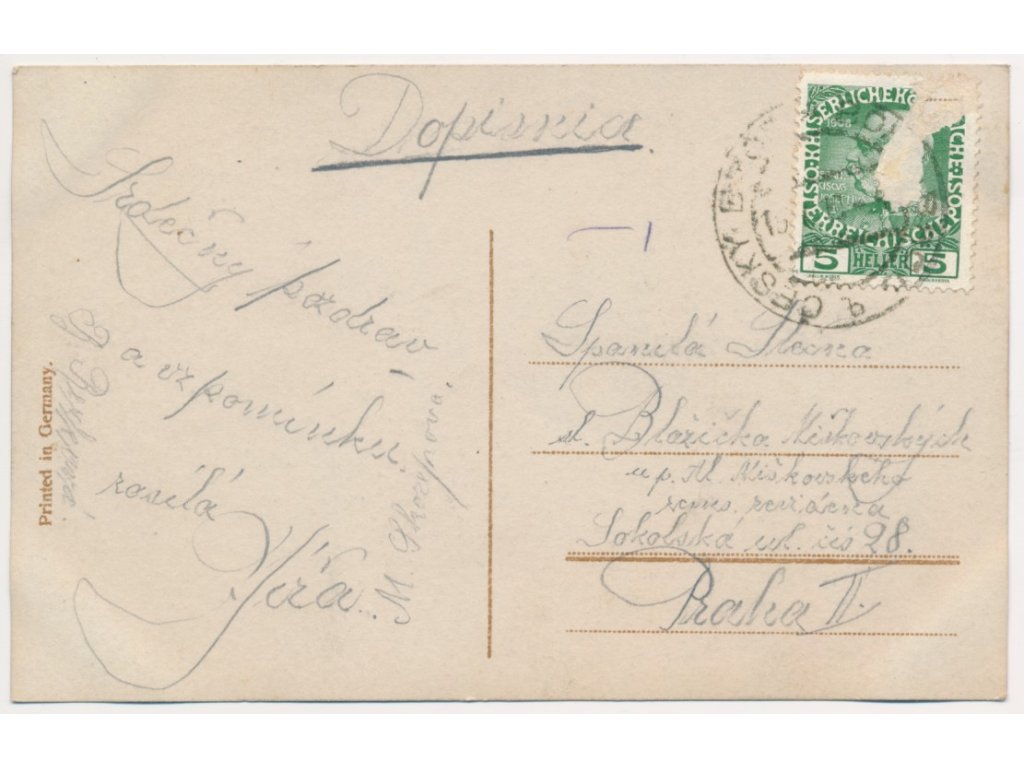 Dopisnia
Srdečný pozdrav
a vzpomínku
zasílá
Víra.
M. Skorepová.
Printed in Germany.
KAISERLICHE KÖ LICHE ÖST
ÖSTERREICHISCHE POST
1908
5 HELLER 5
ČESKÝ B
Spanilá Slečna
sl. Blažička Miškovských
u p. M. Miškovského
Sokolská ul. čís 28.
Praha II.